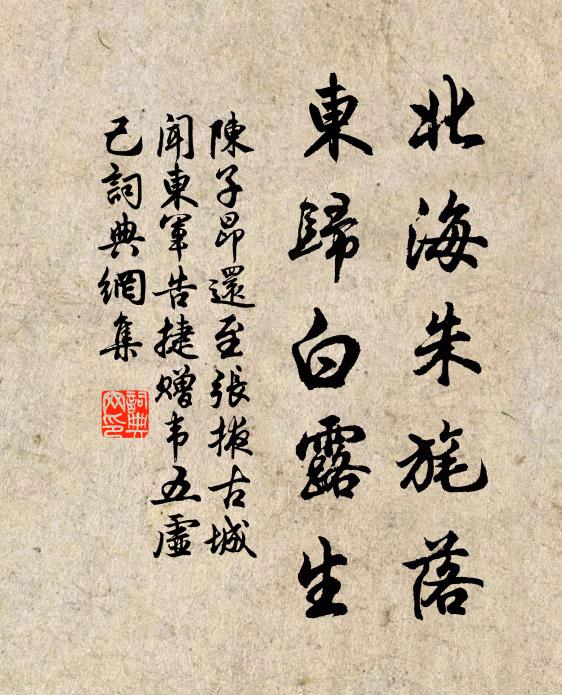 北海朱旄落
東歸白露生
陳子昂還至張掖古城
聞東軍告捷贈韦五虛
己詞典網集
詞典
网印